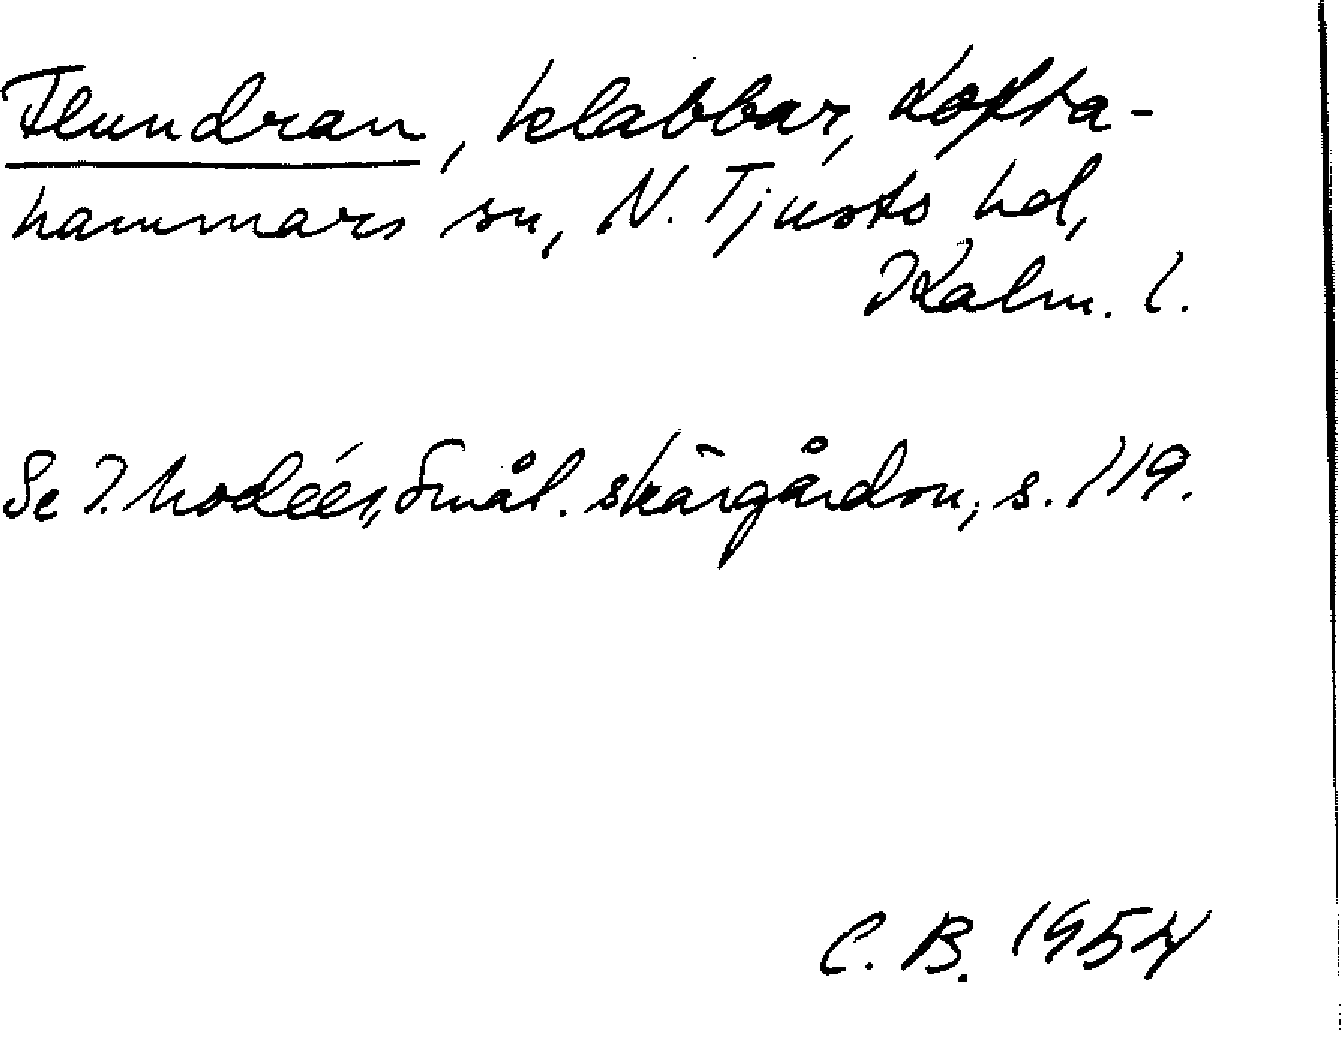 Flundran, klabbar, Lofta-
hammars sn, N. Tjusts hd,
Kalm. l.
Se I. Modéer, Smål. skärgården, s. 119.
C. B. 1954